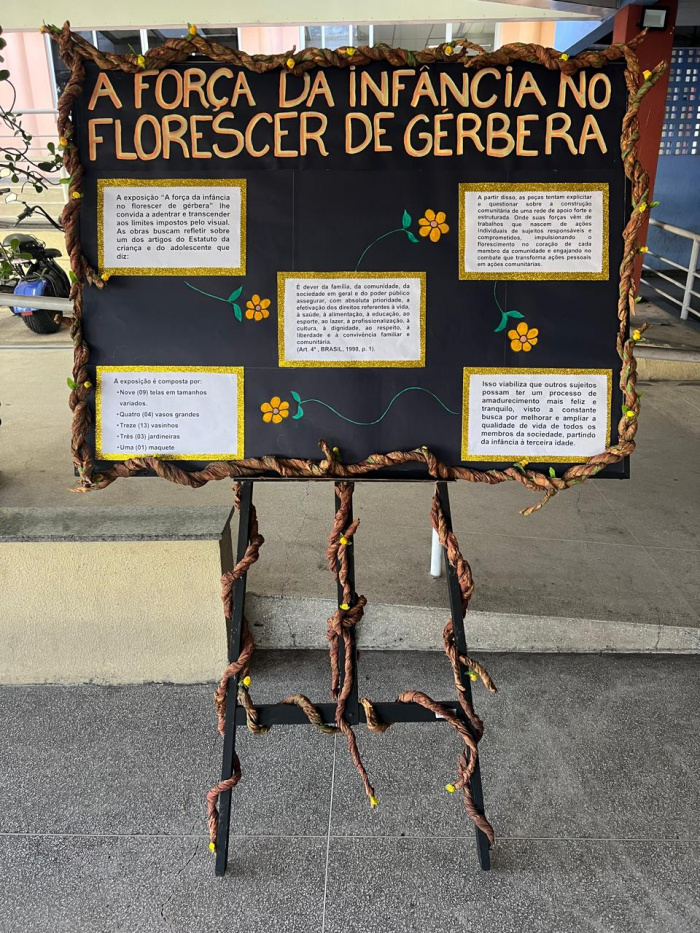 A FORÇA DA INFÂNCIA NO
FLORESCER DE GÉRBERA
A exposição "A força da infância
no florescer de gérbera" lhe
convida a adentrar e transcender
aos limites impostos pelo visual.
As obras buscam refletir sobre
um dos artigos do Estatuto da
criança e do adolescente que
diz:
É dever da família, da comunidade, da
sociedade em geral e do poder público
assegurar, com absoluta prioridade, a
efetivação dos direitos referentes à vida,
à saúde, à alimentação, à educação, ao
esporte, ao lazer, à profissionalização, à
cultura, à dignidade, ao respeito, à
liberdade e à convivência familiar e
comunitária.
(Art. 4º , BRASIL, 1990, p. 1).
A partir disso, as peças tentam explicitar
e questionar sobre a construção
comunitária de uma rede de apoio forte e
estruturada. Onde suas forças vêm de
ações que nascem de ações
individuais de sujeitos responsáveis e
comprometidos, impulsionando o
florescimento no coração de cada
membro da comunidade e engajando no
combate que transforma ações pessoais
em ações comunitárias.
Isso viabiliza que outros sujeitos
possam ter um processo de
amadurecimento mais feliz e
tranquilo, visto a constante
busca por melhorar e ampliar a
qualidade de vida de todos os
membros da sociedade, partindo
da infância à terceira idade.
A exposição é composta por:
• Nove (09) telas em tamanhos
variados.
• Quatro (04) vasos grandes
• Treze (13) vasinhos
• Três (03) jardineiras
• Uma (01) maquete